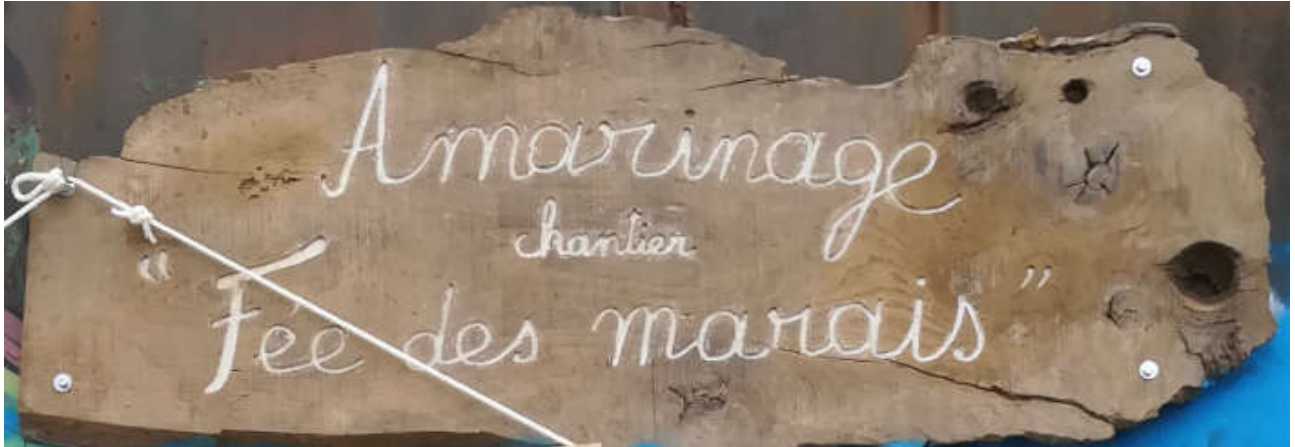 Amarinage
chantier
"Fée des marais"